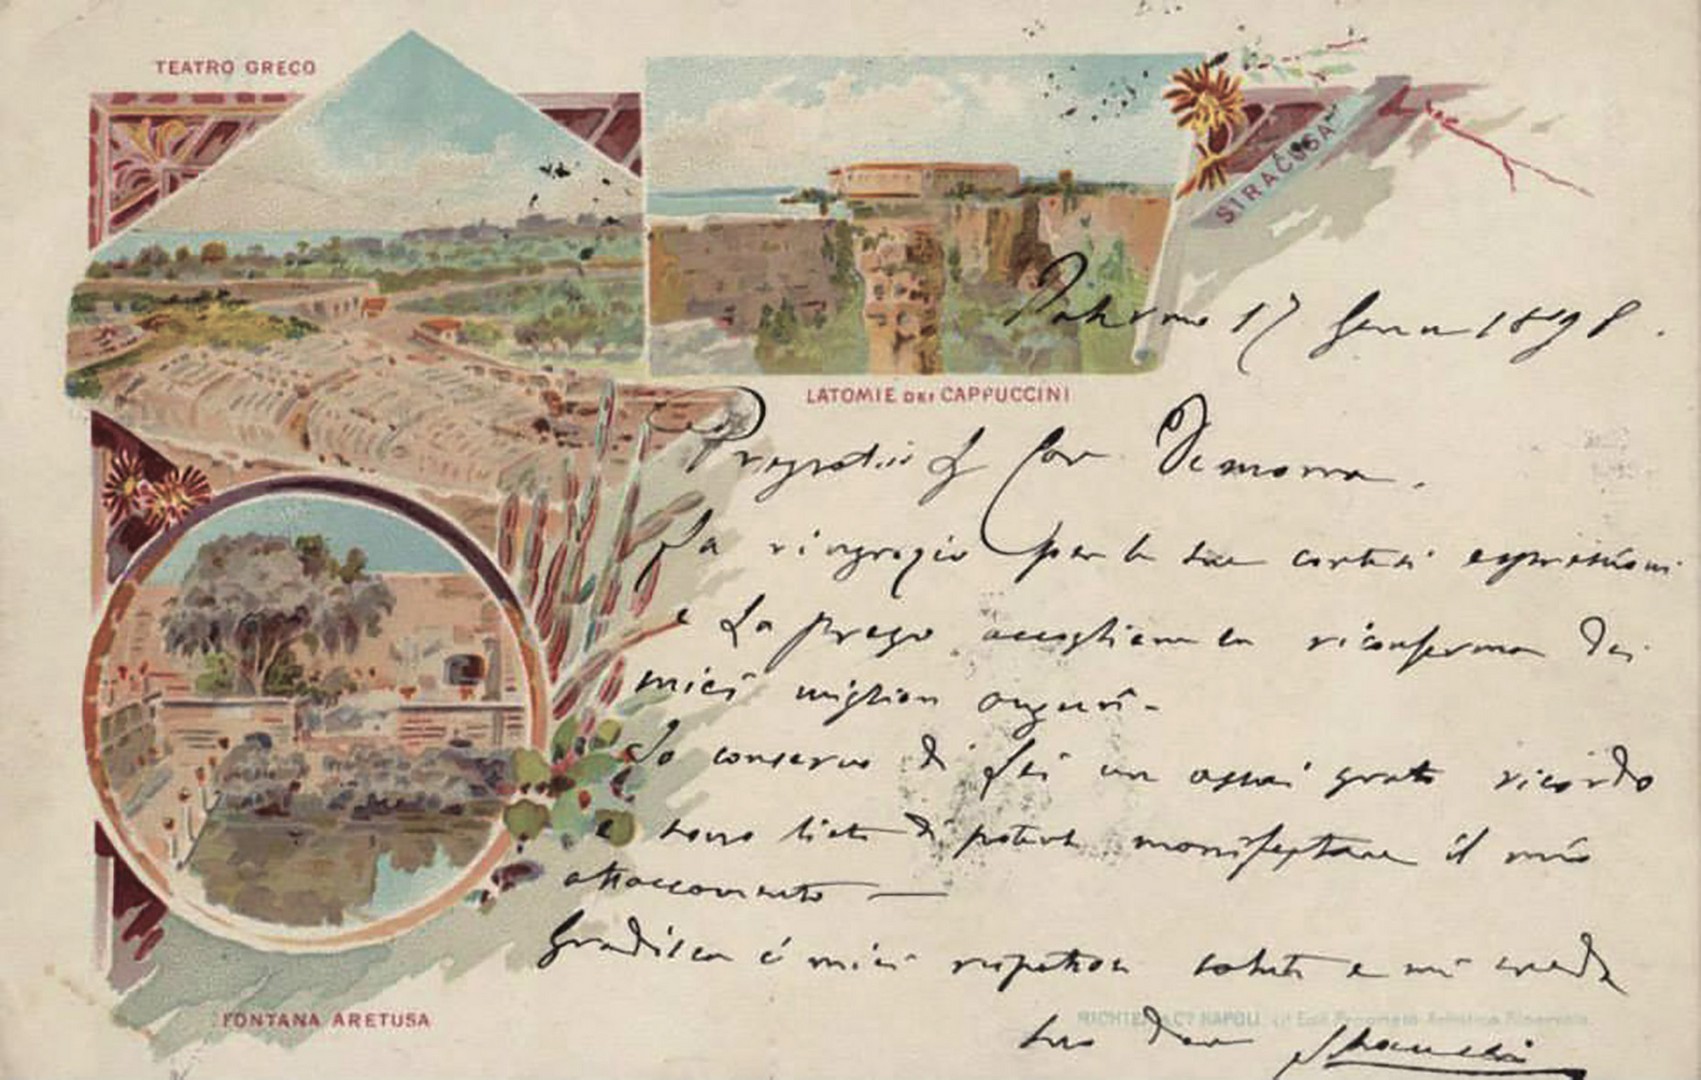 TEATRO GRECO
SIRACUSA
LATOMIE DEI CAPPUCCINI
FONTANA ARETUSA
Palermo 17 Genn 1898.
Cav Demarra.
La ringrazio per le sue cortesi espressioni
e La prego accogliere la riconferma dei
miei migliori auguri-
Io conservo di Lei un assai grato ricordo
e sono lieto di poterle manifestare il mio
attaccamento —
Gradisca i miei rispettosi saluti e mi creda
suo Dev
RICHTER & Cº NAPOLI